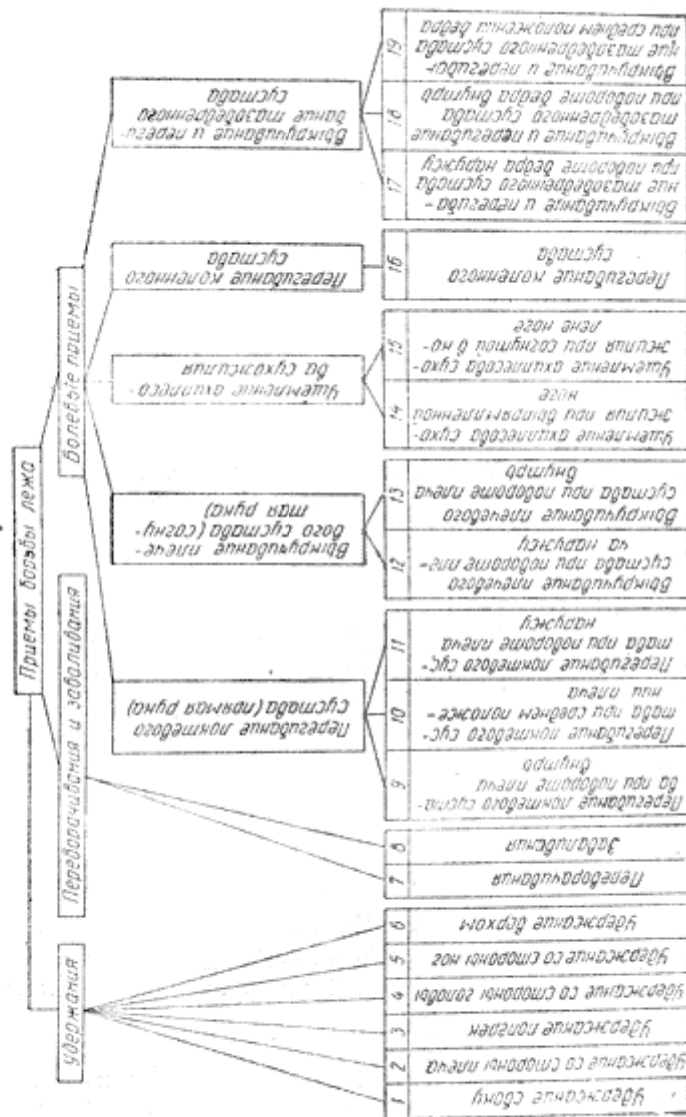 Приемы борьбы лежа
Удержания
Переворачивания и заваливания
Болевые приемы
Перегибание локтевого
сустава (прямая рука)
Выкручивание плече-
вого сустава (согну-
тая рука)
Ущемление ахиллесо-
ва сухожилия
Перегибание коленного
сустава
Выкручивание и переги-
бание тазобедренного
сустава
1
Удержание сбоку
2
Удержание со стороны плеча
3
Удержание поперек
4
Удержание со стороны головы
5
Удержание со стороны ног
6
Удержание верхом
7
Переворачивания
8
Заваливания
9
Перегибание локтевого суста-
ва при повороте плеча
внутрь
10
Перегибание локтевого сус-
тава при среднем положе-
нии плеча
11
Перегибание локтевого сус-
тава при повороте плеча
наружу
12
Выкручивание плечевого
сустава при повороте пле-
ча наружу
13
Выкручивание плечевого
сустава при повороте плеча
внутрь
14
Ущемление ахиллесова сухо-
жилия при выпрямленной
ноге
15
Ущемление ахиллесова сухо-
жилия при согнутой в ко-
лене ноге
16
Перегибание коленного
сустава
17
Выкручивание и перегиба-
ние тазобедренного сустава
при повороте бедра наружу
18
Выкручивание и перегибание
тазобедренного сустава
при повороте бедра внутрь
19
Выкручивание и перегибание
тазобедренного сустава
при среднем положении бедра